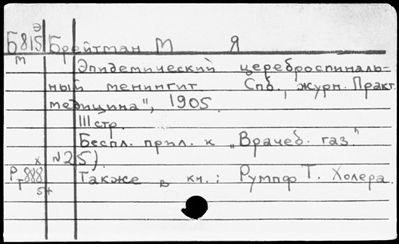 Э
Б815 Брейтман М Я
т Эпидемический цереброспиналь-
ный менингит. Спб., журн. Практ.
медицина", 1905.
III стр.
Беспл. прил. к „Врачеб. газ."
х №25).
Рт888 Также в кн.: Румпф Т. Холера.
5+